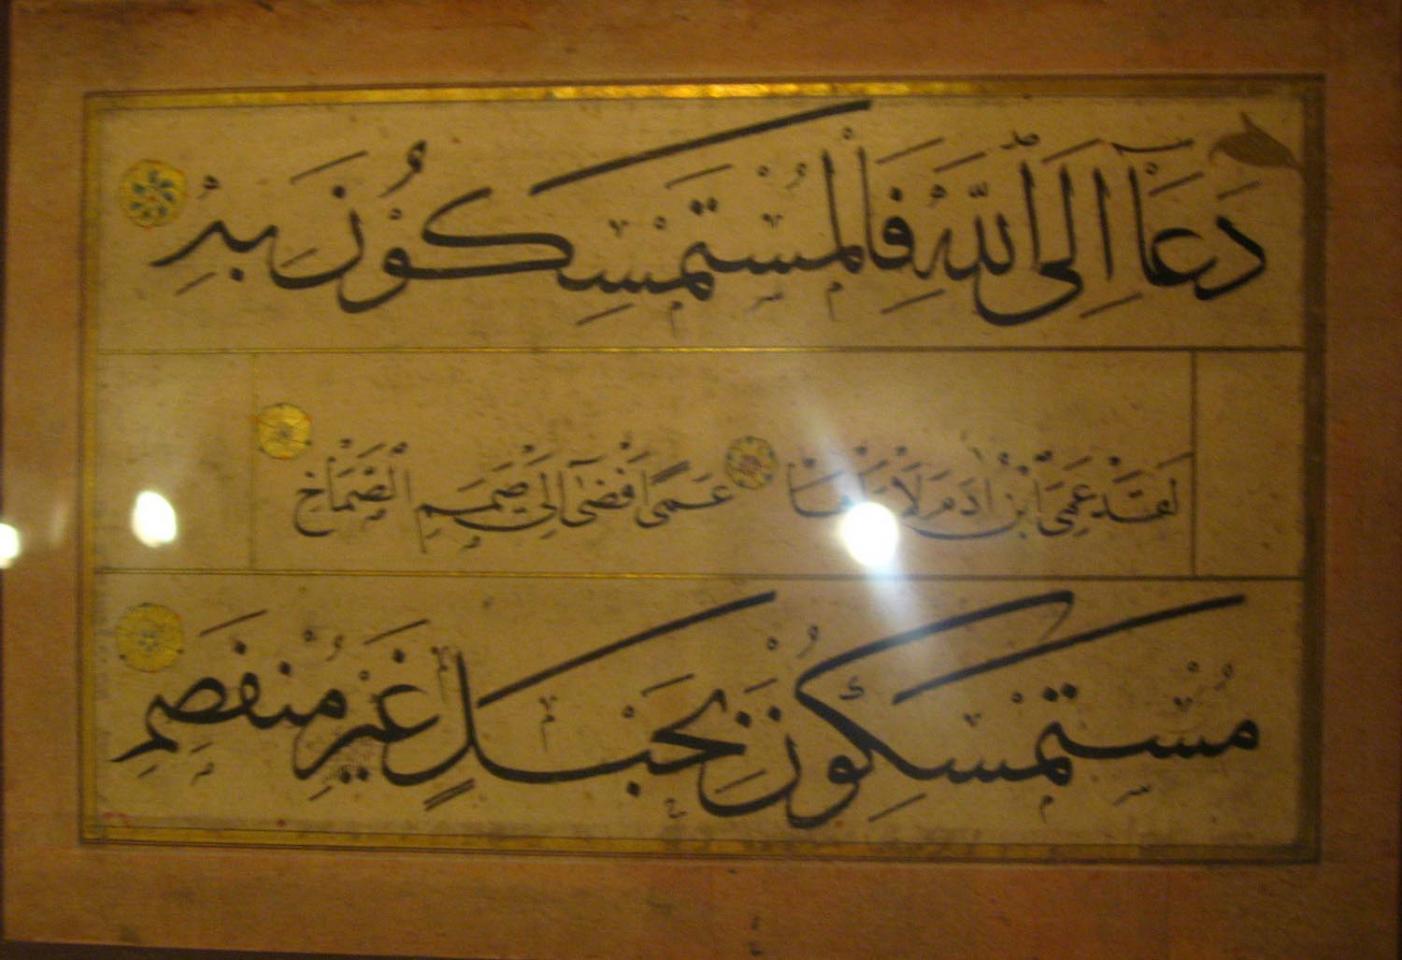 دَعَآ اِلَى اللّٰهِ فَالْمُسْتَمْسِكُونَ بِهِ
لَقَدْ عَمِىَ ابْنُ اٰدَمَ لَا يَرَاهَا عَمًى اَفْضٰى اِلٰى صَمَمِ الصِّمَاخِ
مُسْتَمْسِكُونَ بِحَبْلٍ غَيْرِ مُنْفَصِمِ